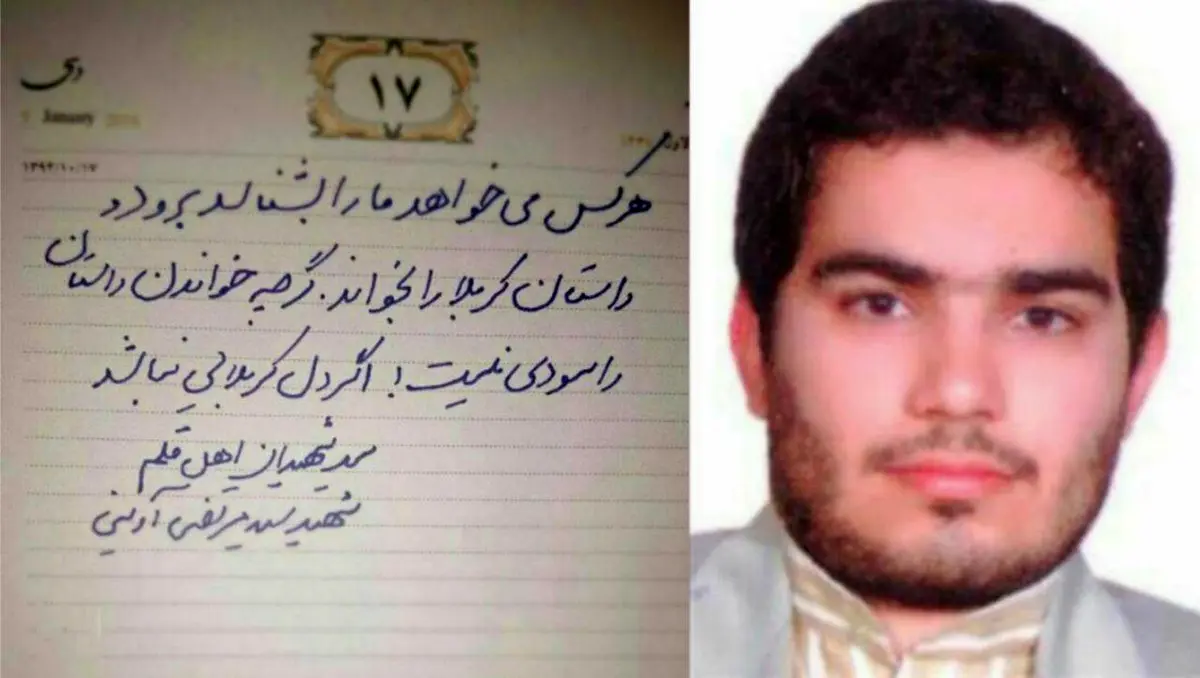 دی
۱۷
January
هر کس می خواهد ما را بشناسد برود و
داستان کربلا را بخواند. گرچه خواندن داستان
را سودی نیست! اگر دل کربلایی نباشد
سید شهیدان اهل قلم
شهید سید مرتضی آوینی